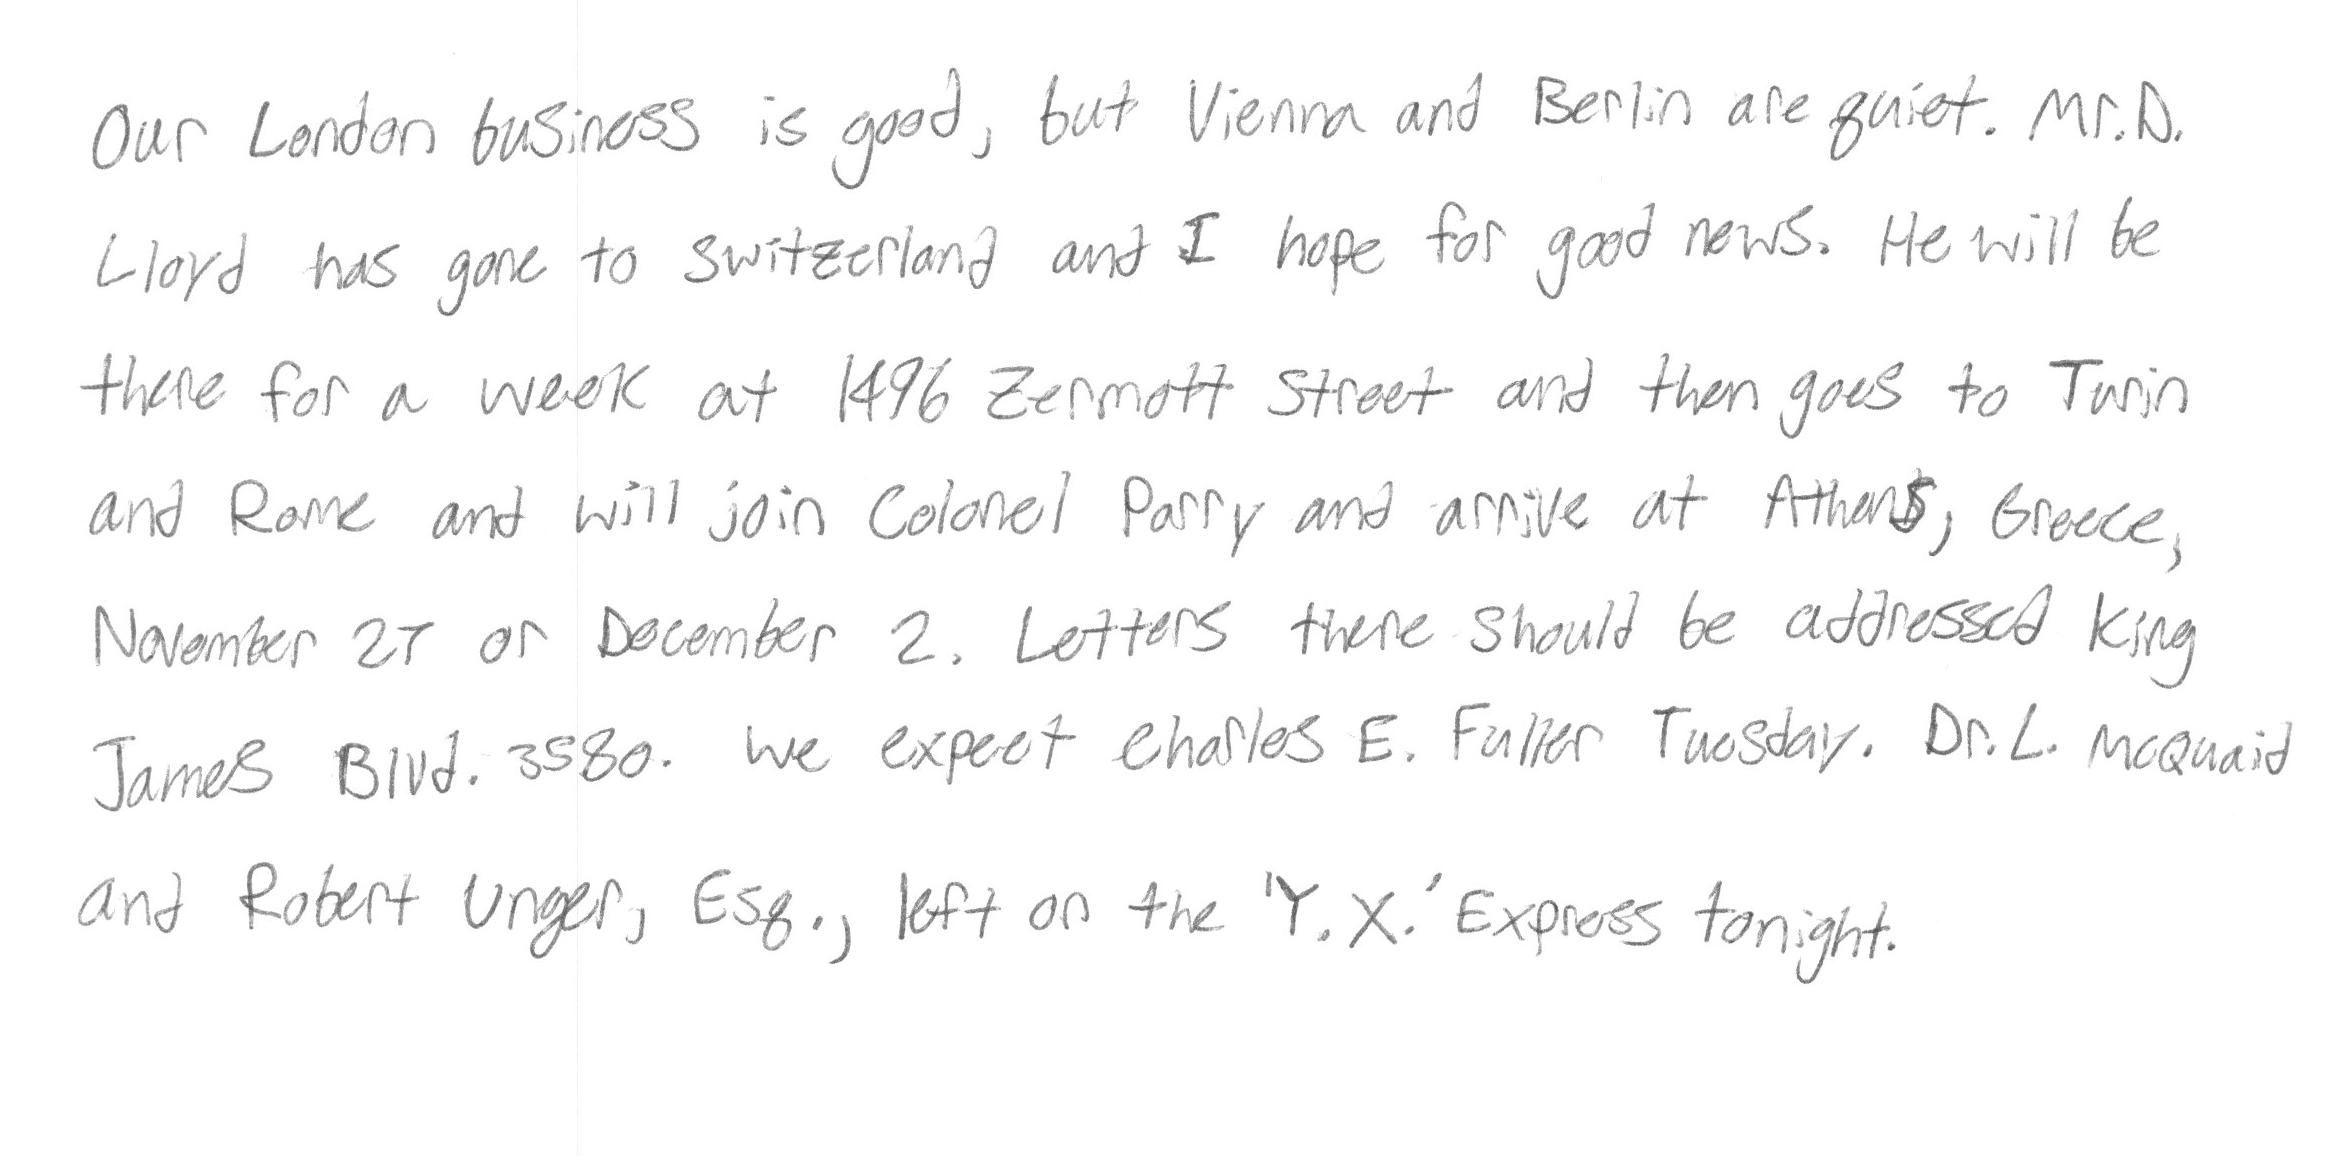 Our London business is good, but Vienna and Berlin are quiet. Mr. D.
Lloyd has gone to Switzerland and I hope for good news. He will be
there for a week at 1496 Zermott Street and then goes to Turin
and Rome and will join Colonel Parry and arrive at Athens, Greece,
November 27 or December 2. Letters there should be addressed King
James Blvd. 3580. We expect Charles E. Fuller Tuesday. Dr. L. McQuaid
and Robert Unger, Esq., left on the 'Y. X.' Express tonight.